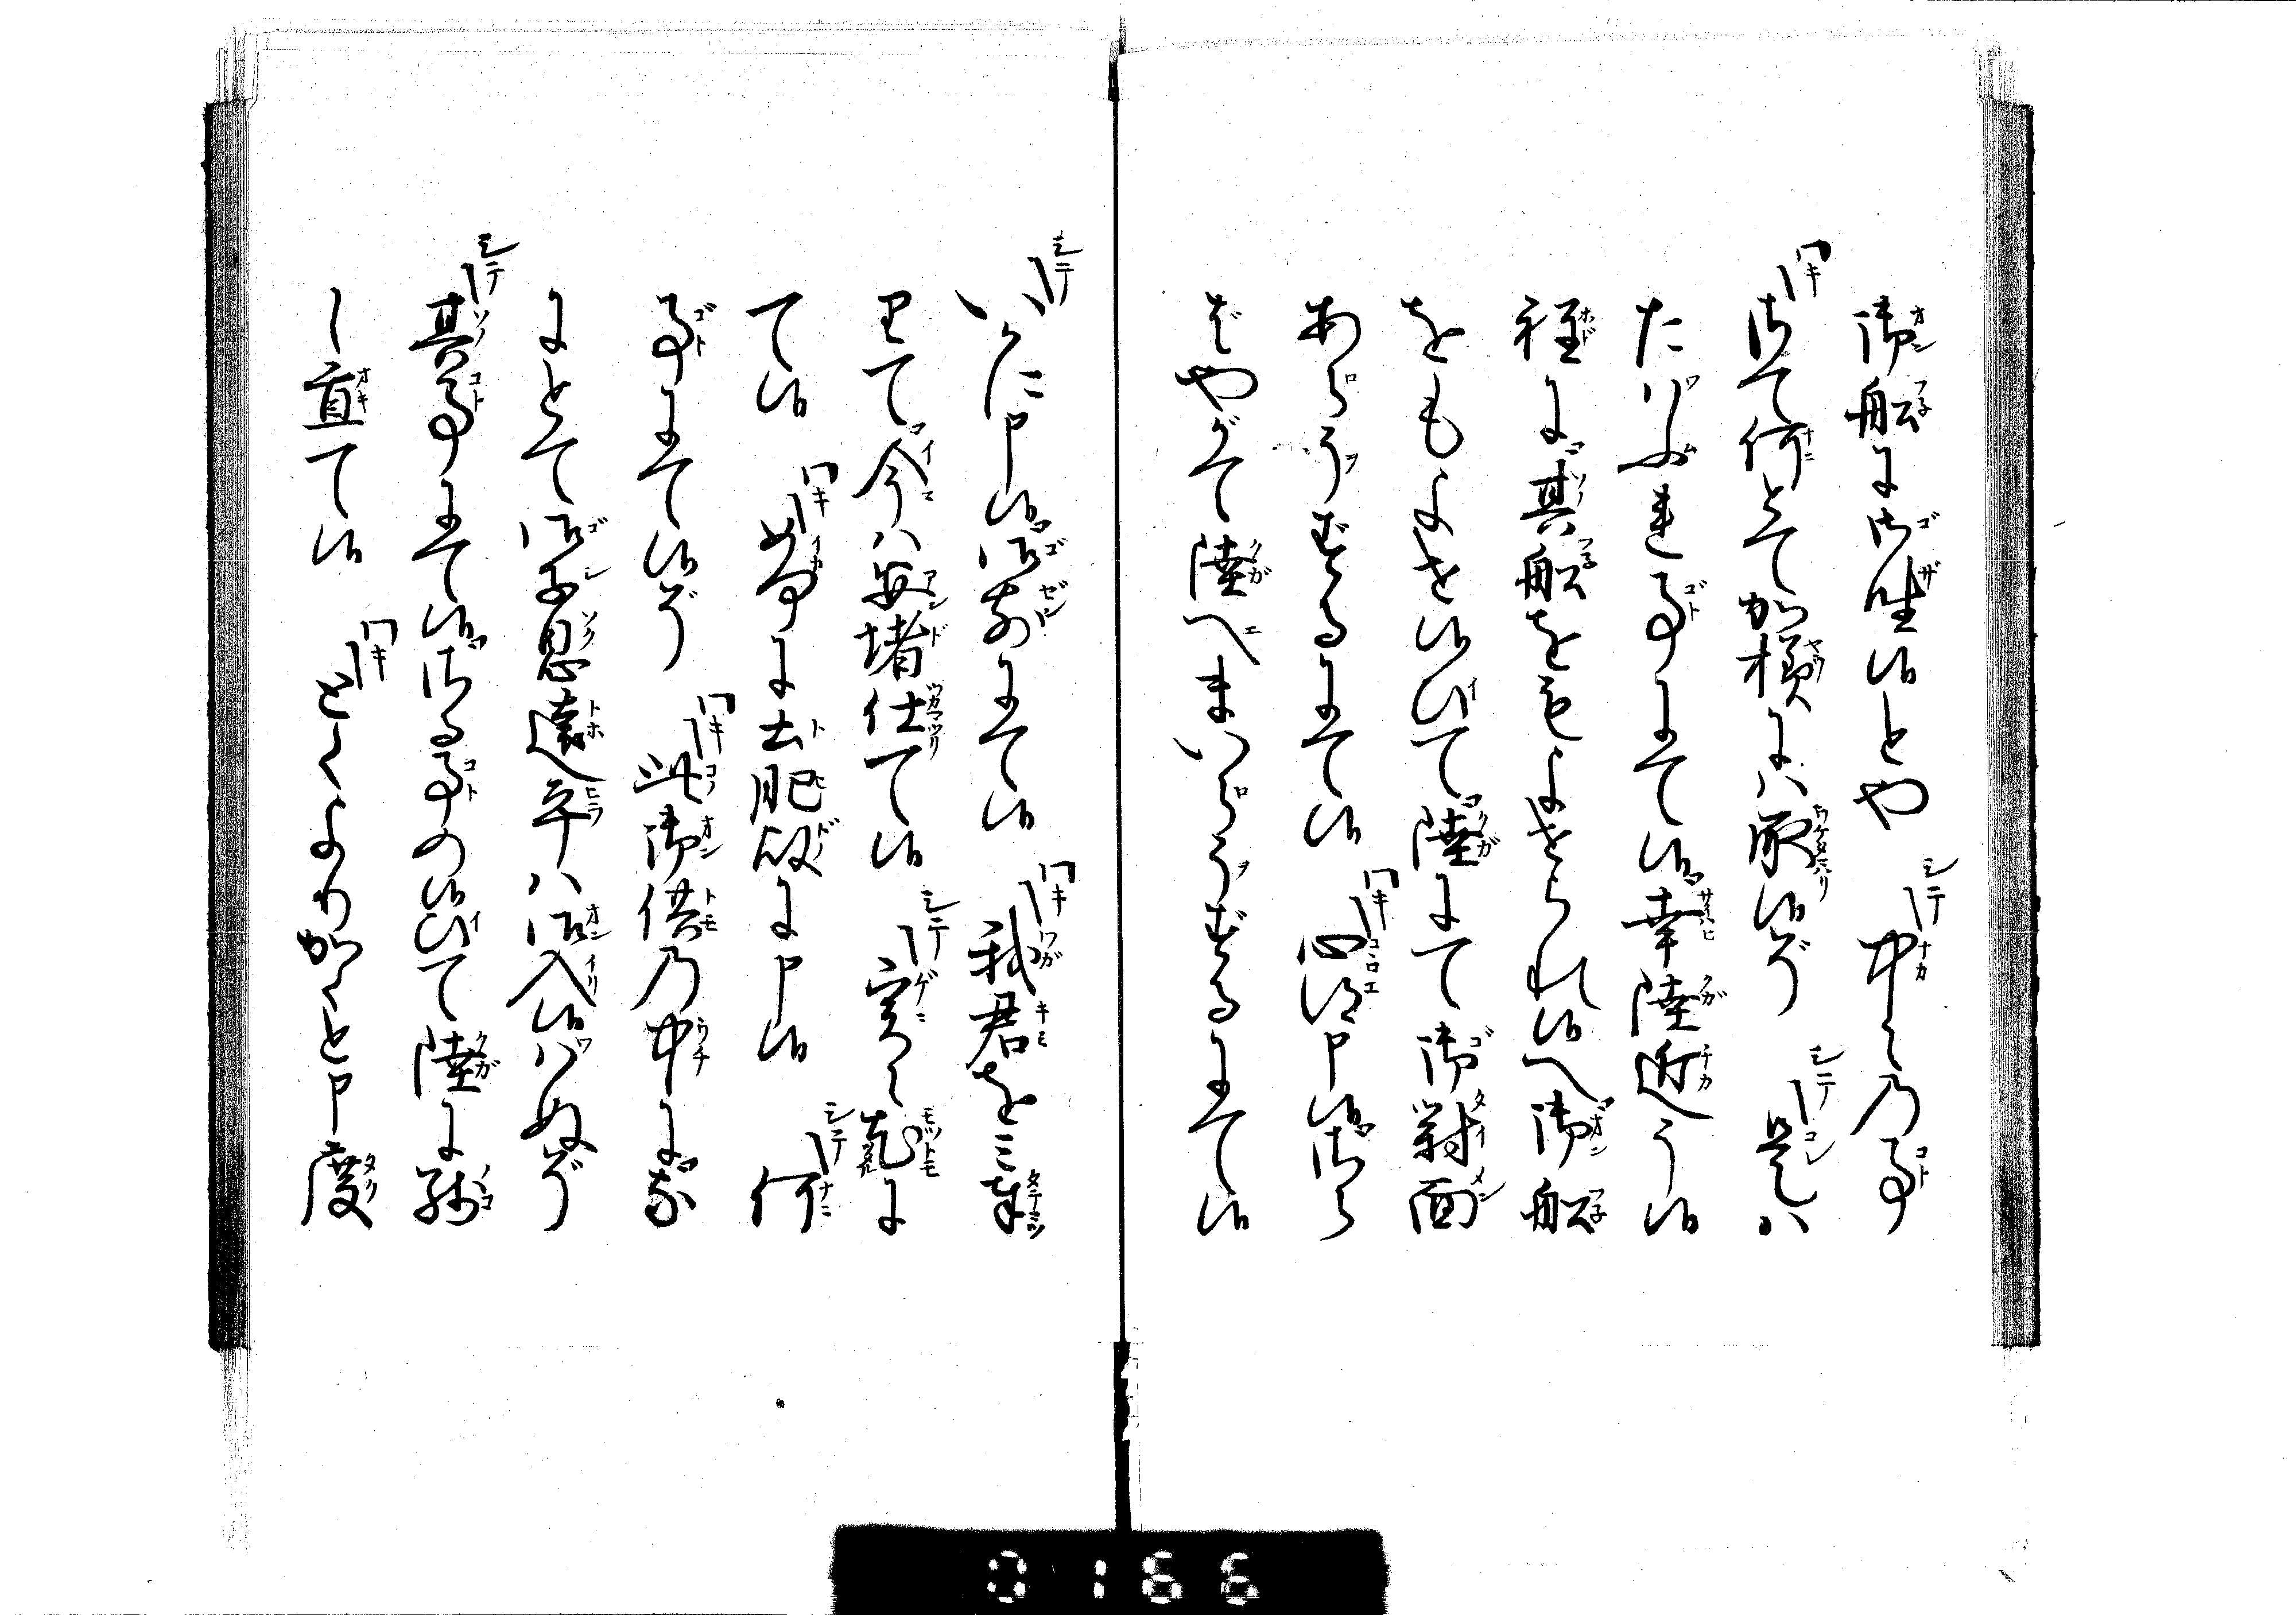 御船に御座候とや シテ 中々の事
ワキ さて何とて加様には承候ぞ シテ 是は
たはぶれ事にて候。幸陸近う候
程に。其船をもよせられ候へ。御船
をもよせ候ひて。陸にて御対面
あらうずるにて候 ワキ 心得申候。さら
ばやがて陸へまいらうずるにて候
シテ いかに申候。御前にて候 ワキ 我君を見奉
りて。今は安堵仕て候 シテ 実々尤に
て候 ワキ 如何に土肥殿に申候 シテ 何
事にて候ぞ ワキ 此御供の中に。な
にとて御子息遠平は御入候はぬぞ
シテ 其事にて候。さる事の候ひて陸に残
し置て候 ワキ とくよりかくと申度
0166